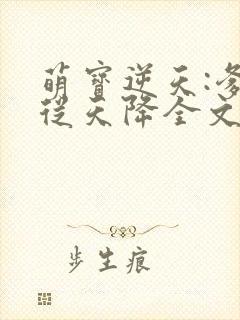 萌寶逆天:爹
從天降全文
步生痕